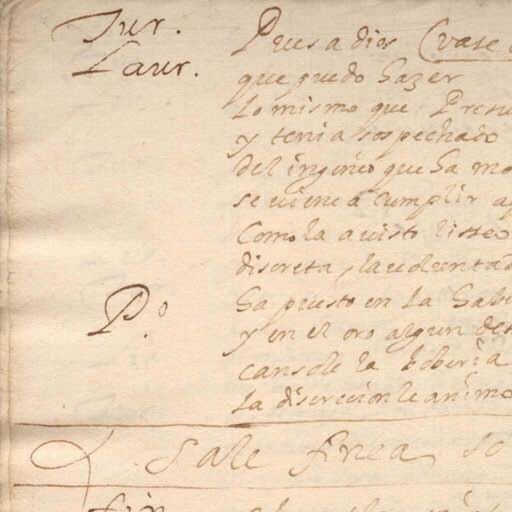 Tur. Pues a dios (vase
Laur. que puedo hazer
Lo mismo que Presu
y tenia sospechado
del ingenio que ha mo
se viene a cumplir aq
Como la a visto Liseo
discreta, la voluntad
P.º ha puesto en la habi
y en el oro algun des
cansole la boberia
La discrecion le animo
Sale finea, so
fin.